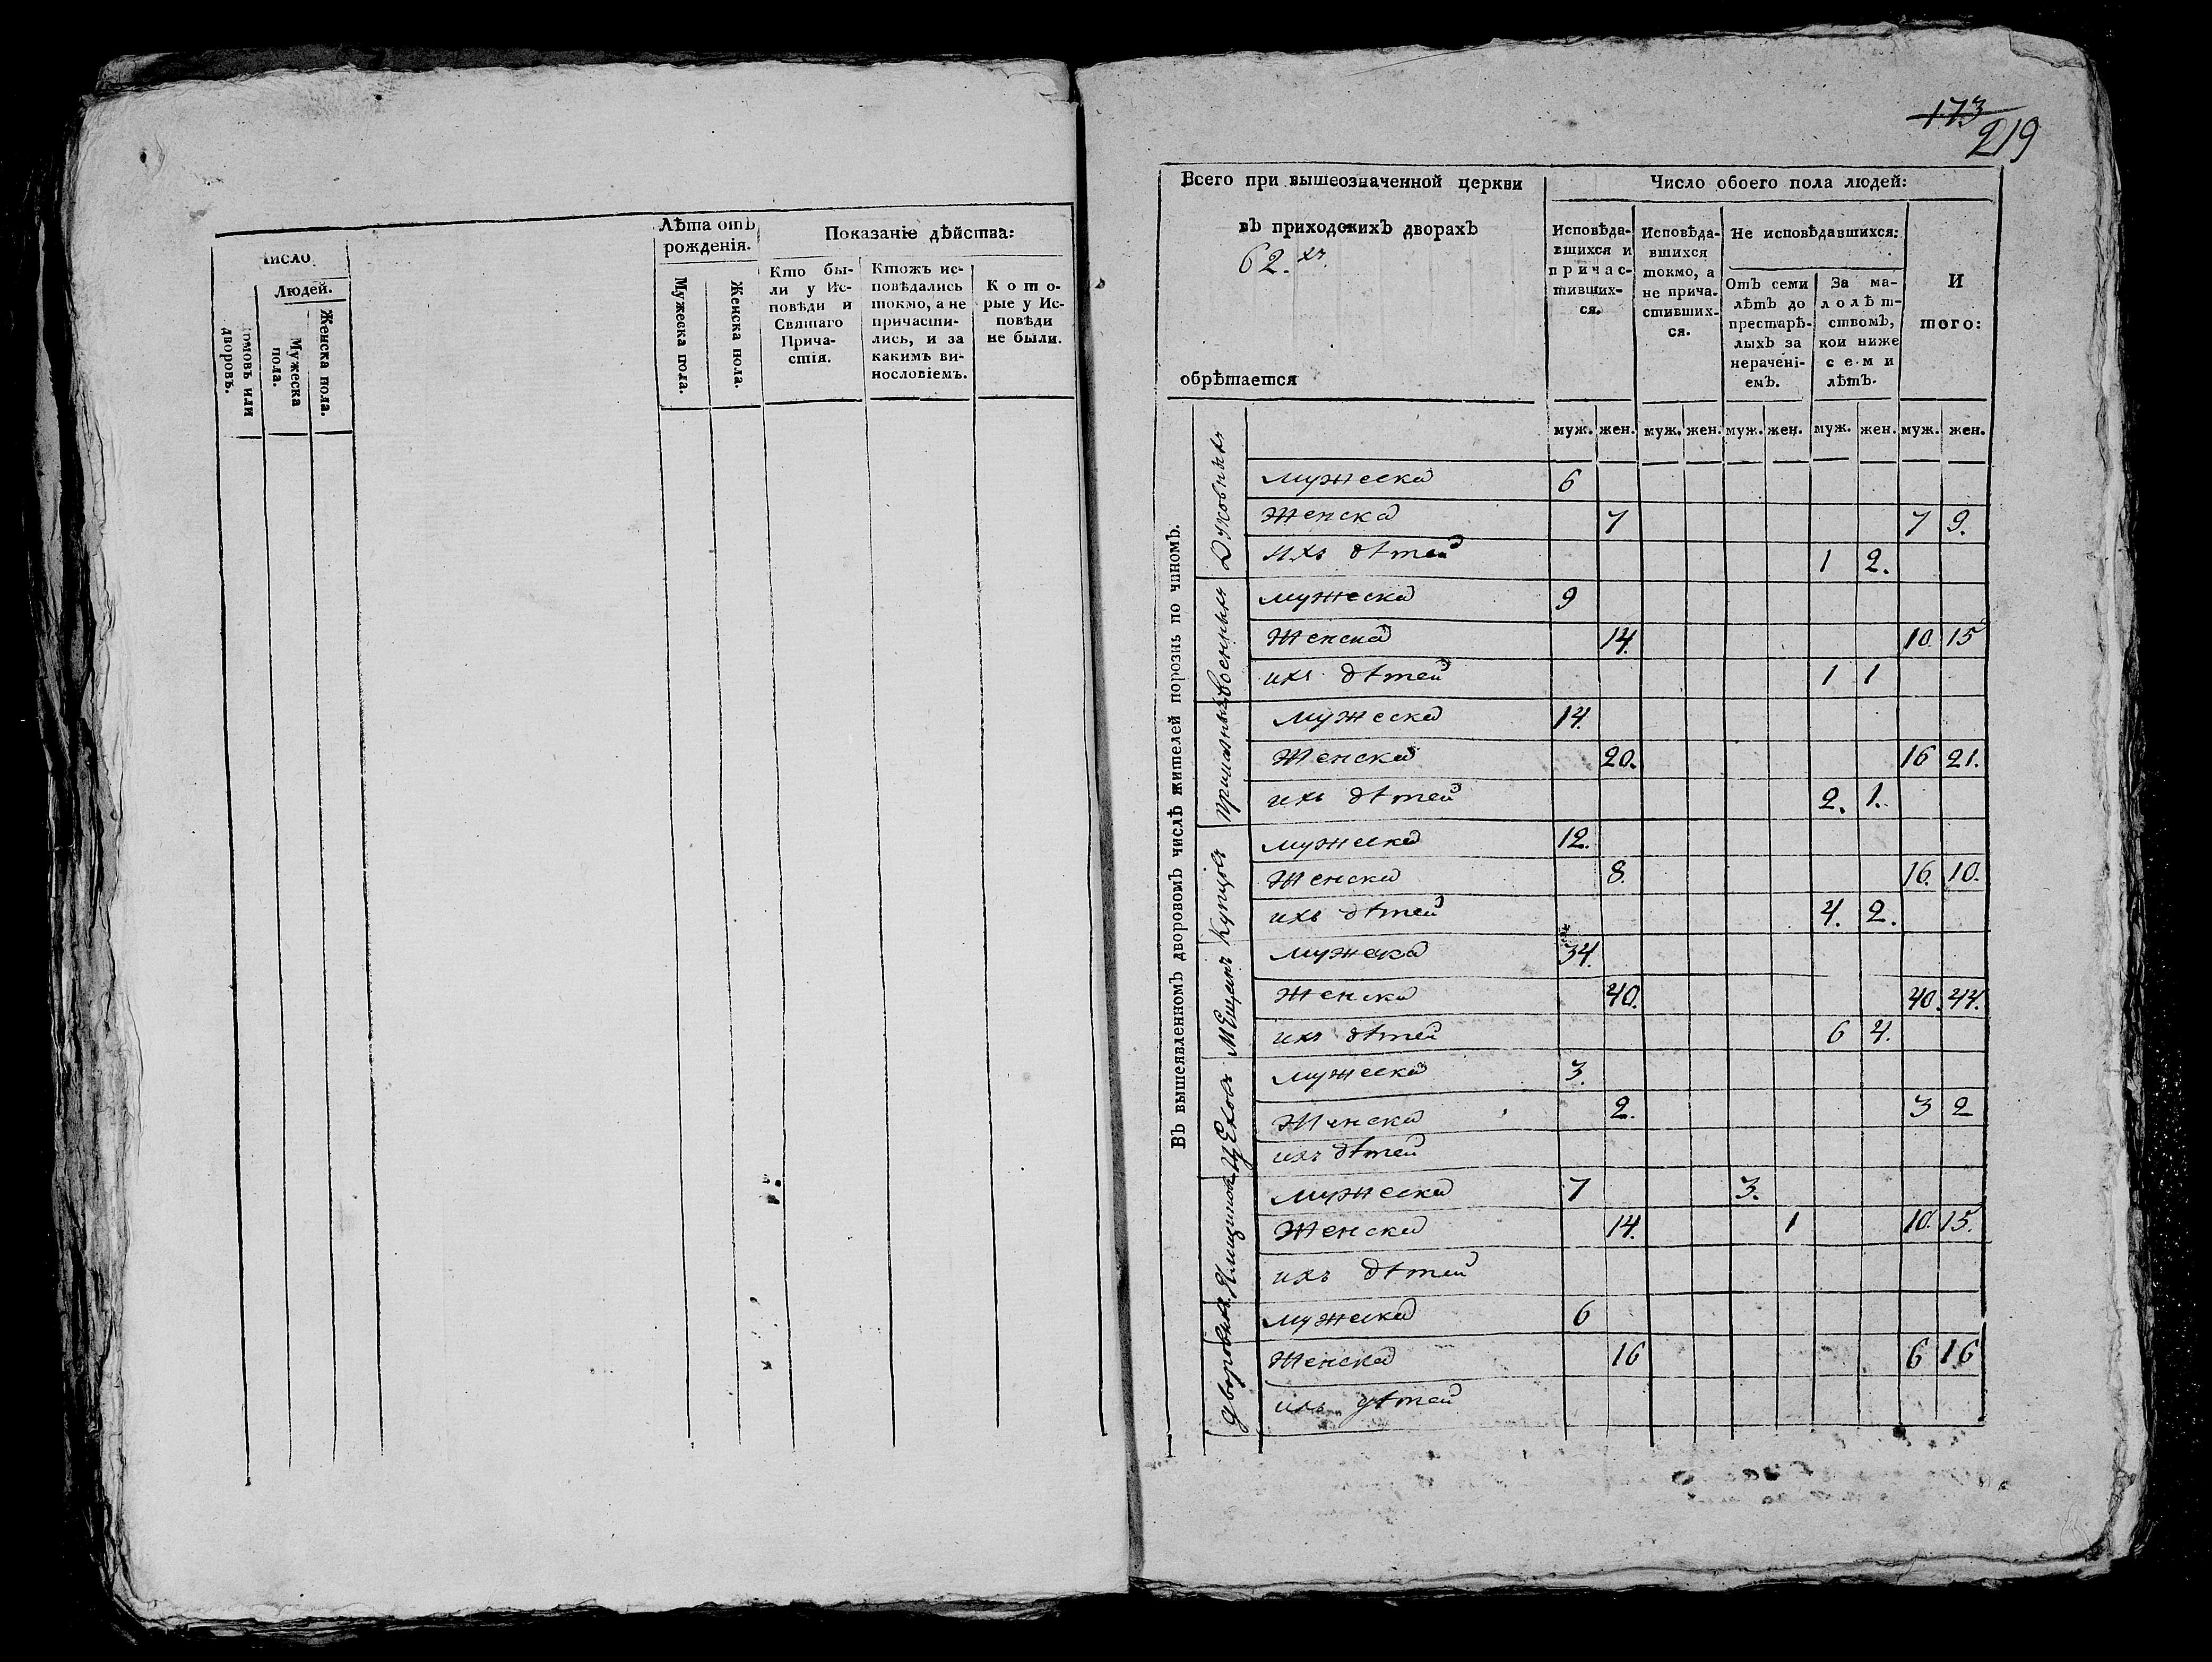 число
Людей.
домовъ или дворовъ.
Мужеска пола.
Женска пола.
Лѣта отъ
рожденія.
Мужеска пола.
Женска пола.
Показаніе дѣйства:
Кто бы-
ли у Ис-
повѣди и
Святаго
Прича-
стія.
Ктожъ ис-
повѣдались
токмо, а не
причасти-
лись, и за
какимъ ви-
нословіемъ.
Кото-
рые у Ис-
повѣди
не были.
173
219
Всего при вышеозначенной церкви
въ приходскихъ дворахъ
62.хъ
обрѣтается
Число обоего пола людей:
Исповѣда-
вшихся и
причас-
тивших-
ся.
Исповѣда-
вшихся
токмо, а
не прича-
стивших-
ся.
Не исповѣдавшихся:
Отъ семи
лѣтъ до
престарѣ-
лыхъ за
нерачені-
емъ.
За ма-
лолѣт-
ствомъ,
кои ниже
семи
лѣтъ.
И
того:
муж. жен. муж. жен. муж. жен. муж. жен. муж. жен.
Въ вышеявленномъ дворовомъ числѣ жителей порознь по чиномъ.
Духовныхъ
мужеска 6
Женска 7 7 9.
ихъ дѣтей 1 2.
Военныхъ
мужеска 9
Женска 14. 10. 15
ихъ дѣтей 1 1
Приказныхъ
мужеска 14.
Женска 20. 16 21.
ихъ дѣтей 2. 1.
Купцовъ
мужеска 12.
Женска 8. 16. 10.
ихъ дѣтей 4. 2.
Мещанъ
мужеска 34.
Женска 40. 40. 44.
ихъ дѣтей 6 4.
Цеховъ
мужеска 3.
Женска 2. 3 2
ихъ дѣтей
Ямщиковъ
мужеска 7 3.
Женска 14. 1 10. 15.
ихъ дѣтей
дворовыхъ
мужеска 6
Женска 16 6 16
ихъ дѣтей